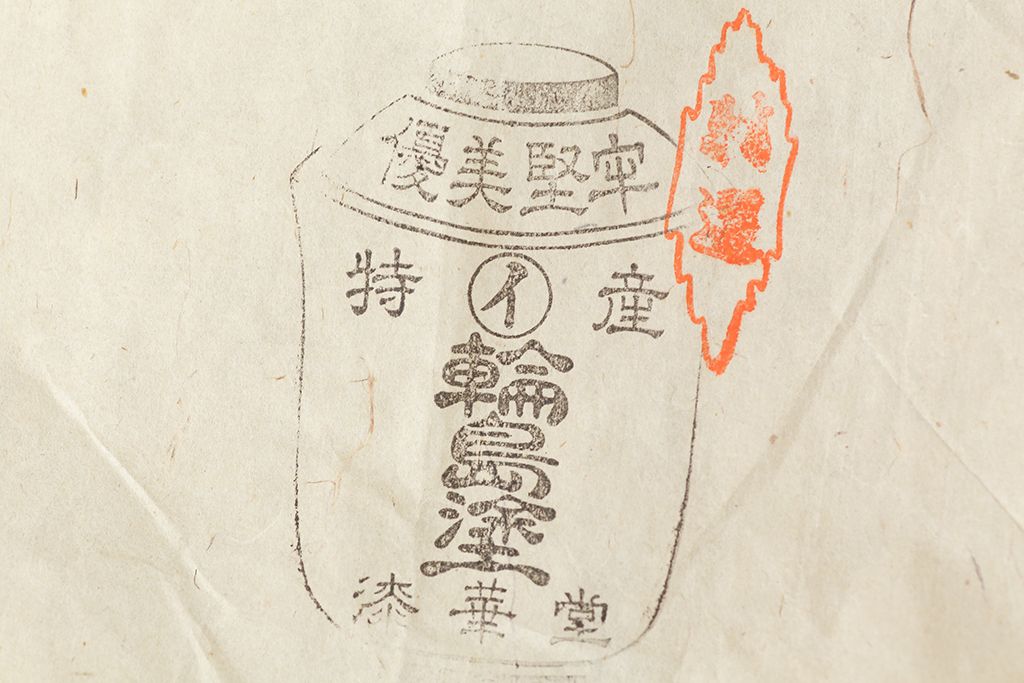 優美堅牢
特 イ 産
輪島塗
漆華堂
選